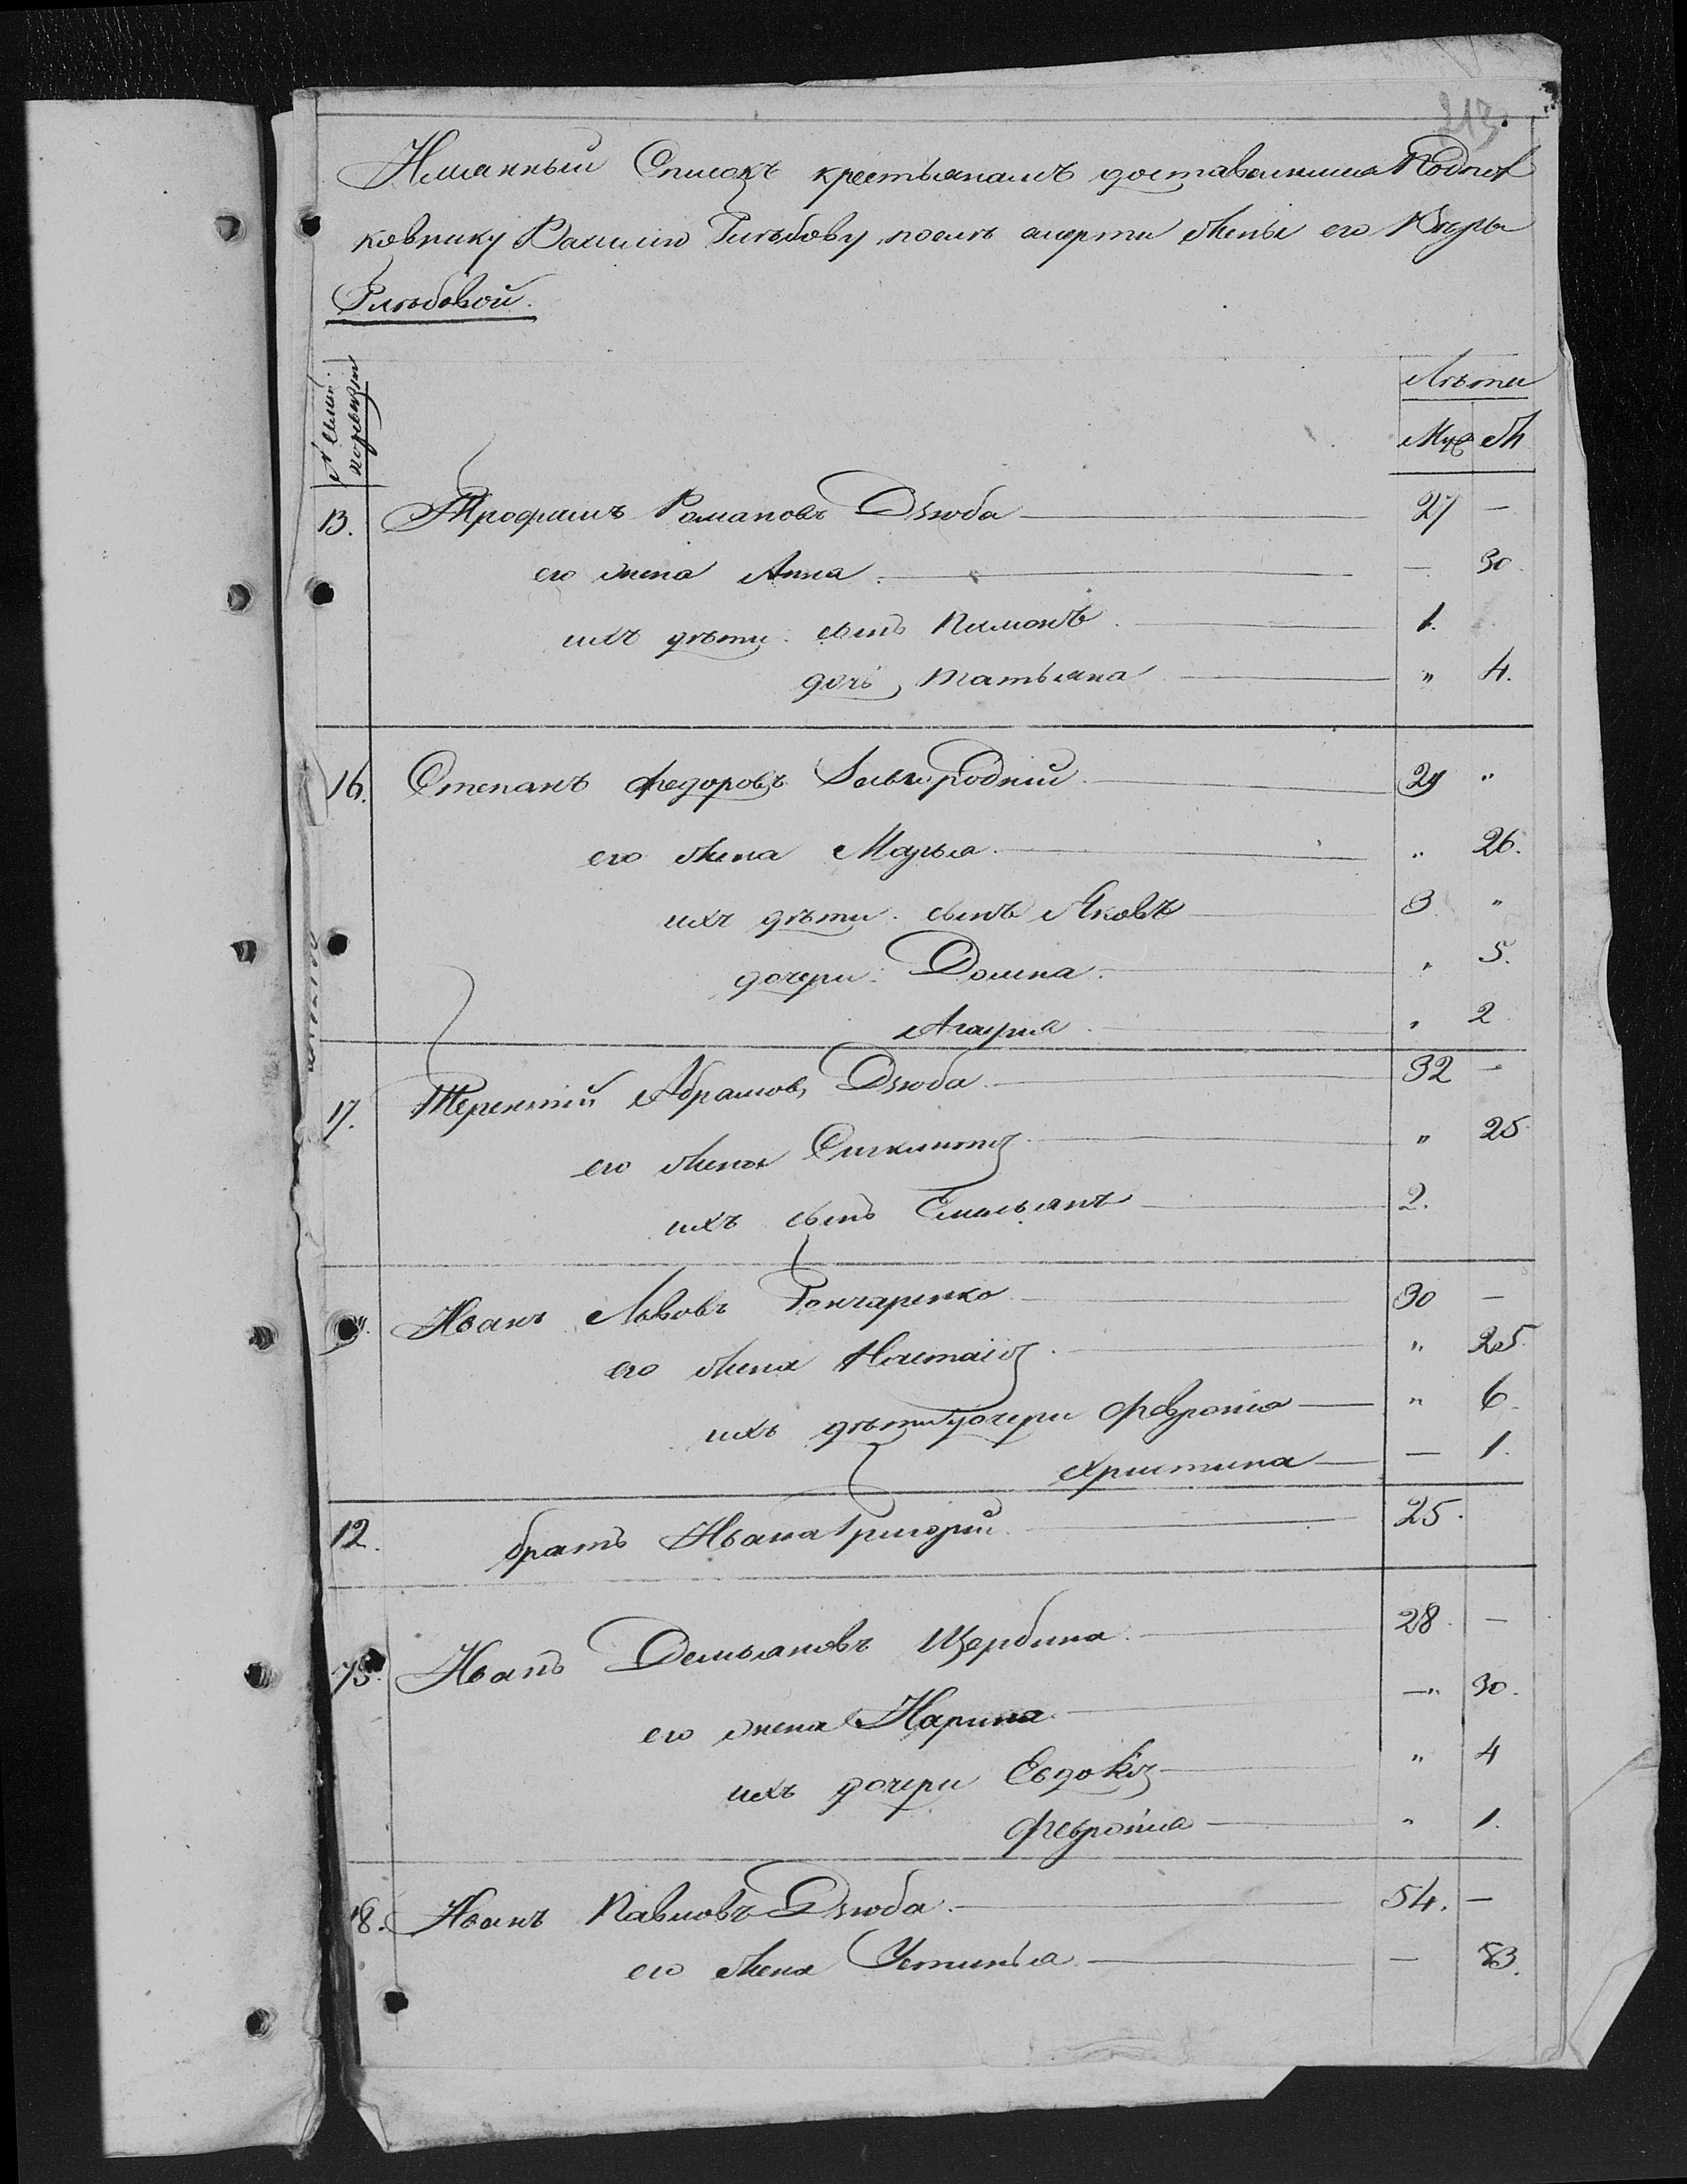 213.
Имянный Списокъ крестьянамъ доставшимся Подпол
ковнику Василию Глѣбову, послѣ смерти жены его Вѣры
Глѣбовой.
№ Семей: по ревизіи
Лѣта
Муж Ж
13. Трофимъ Романовъ Дзюба 27 —
его жена Анна — 30.
ихъ дѣти: сынъ Пимонъ 1.
дочь Татьяна " 4.
16. Степанъ Федоровъ 29 "
его жена Марья " 26.
ихъ дѣти: сынъ Яковъ 3 "
дочери: Домна " 5.
" 2
17. Терентий Абрамовъ Дзюба 32 —
его жена " 25.
ихъ сынъ Емельянъ 2.
". Иванъ Львовъ Гончаренко 30 —
его жена Настасія " 25.
ихъ дѣти дочери Февронія " 6.
Христина — 1.
12. братъ Ивана Григорий 25.
75. Иванъ Демьяновъ Щербина 28. —
его жена Марина —" 30.
ихъ дочери Евдокія " 4
Февронія " 1.
18. Иванъ Павловъ Дзюба 54. —
его жена Устинья — 53.